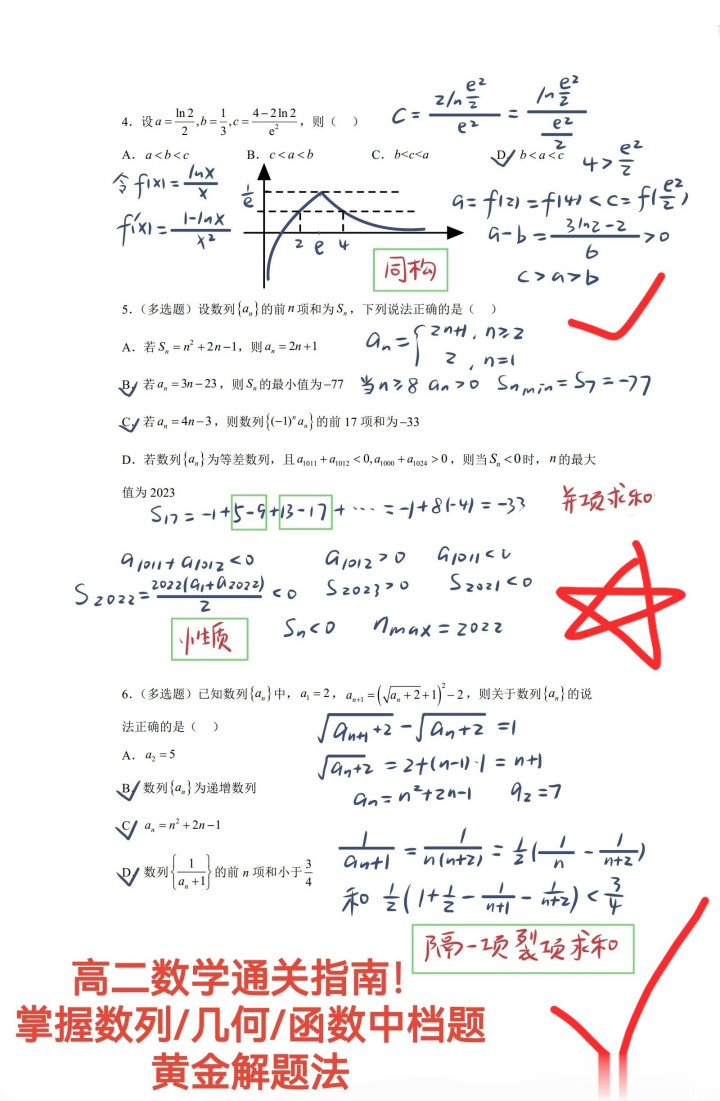 4. 设a = \frac{\ln 2}{2}, b = \frac{1}{3}, c = \frac{4-2\ln 2}{e^2}，则（ ）
C = \frac{2\ln\frac{e^2}{2}}{e^2} = \frac{\ln\frac{e^2}{2}}{\frac{e^2}{2}}
A. a<b<c B. c<a<b C. b<c<a D. b<a<c
4 > \frac{e^2}{2}
令 f(x) = \frac{lnx}{x}
f'(x) = \frac{1-lnx}{x^2}
\frac{1}{e}
2 e 4
a = f(2) = f(4) < c = f(\frac{e^2}{2})
a-b = \frac{3ln2-2}{6} > 0
c>a>b
同构
5.（多选题）设数列{a_n}的前n项和为S_n，下列说法正确的是（ ）
A. 若S_n = n^2+2n-1，则a_n = 2n+1
a_n = { 2n+1, n≥2
2, n=1
B. 若a_n = 3n-23，则S_n的最小值为-77 当n≥8 a_n>0 S_{n min} = S_7 = -77
C. 若a_n = 4n-3，则数列{(-1)^n a_n}的前17项和为-33
D. 若数列{a_n}为等差数列，且a_{1011}+a_{1012}<0, a_{1000}+a_{1024}>0，则当S_n<0时，n的最大
值为2023
S_{17} = -1+5-9+13-17+⋯ = -1+8(-4) = -33
并项求和
a_{1011}+a_{1012}<0 a_{1012}>0 a_{1011}<0
S_{2022} = \frac{2022(a_1+a_{2022})}{2} <0 S_{2023}>0 S_{2021}<0
性质
S_n<0 n_{max} = 2022
6.（多选题）已知数列{a_n}中，a_1=2，a_{n+1}=(\sqrt{a_n+2}+1)^2-2，则关于数列{a_n}的说
法正确的是（ ）
\sqrt{a_{n+1}+2}-\sqrt{a_n+2} = 1
A. a_2=5
\sqrt{a_n+2} = 2+(n-1)·1 = n+1
B. 数列{a_n}为递增数列
a_n = n^2+2n-1 a_2=7
C. a_n = n^2+2n-1
\frac{1}{a_n+1} = \frac{1}{n(n+2)} = \frac{1}{2}(\frac{1}{n}-\frac{1}{n+2})
D. 数列{\frac{1}{a_n+1}}的前n项和小于\frac{3}{4}
和 \frac{1}{2}(1+\frac{1}{2}-\frac{1}{n+1}-\frac{1}{n+2})<\frac{3}{4}
隔一项裂项求和
高二数学通关指南！
掌握数列/几何/函数中档题
黄金解题法